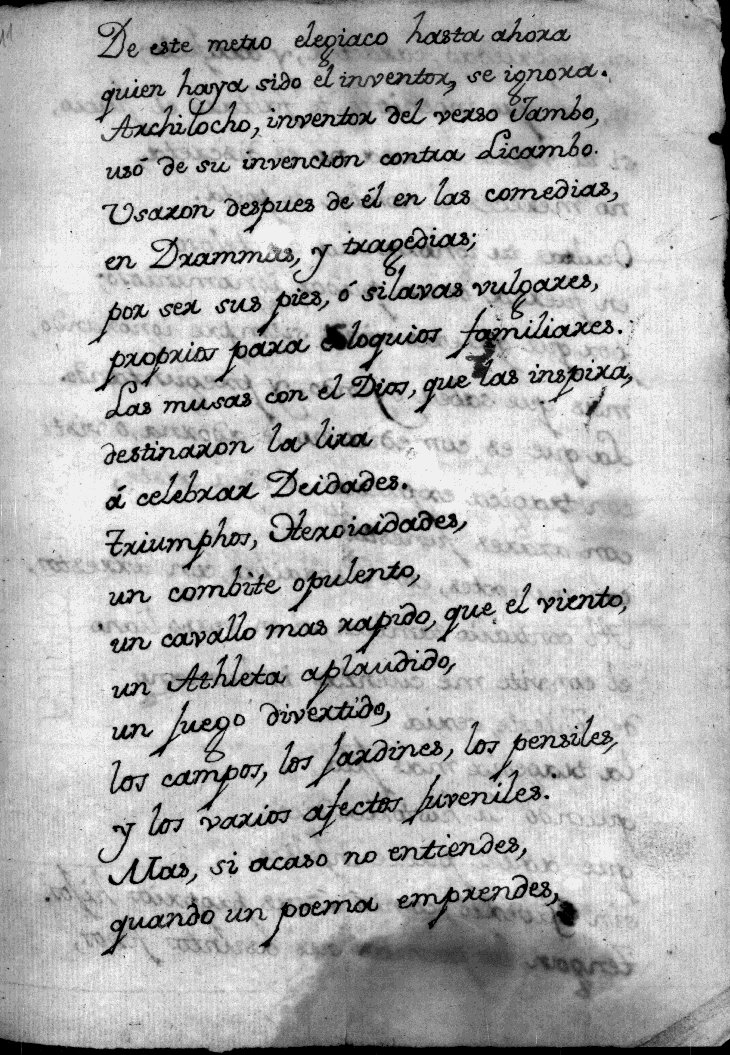 De este metro elegiaco hasta ahora
quien haya sido el inventor, se ignora.
Archilocho, inventor del verso Jambo,
usó de su invencion contra Licambo.
Usaron despues de él en las comedias,
en Drammas, y tragedias;
por ser sus pies, ó silavas vulgares,
proprios para coloquios familiares.
Las musas con el Dios, que las inspira,
destinaron la lira
á celebrar Deidades.
triumphos, Heroicidades,
un combite opulento,
un cavallo mas rapido, que el viento,
un Athleta aplaudido,
un juego divertido,
los campos, los jardines, los pensiles,
y los varios afectos juveniles.
Mas, si acaso no entiendes,
quando un poema emprendes,